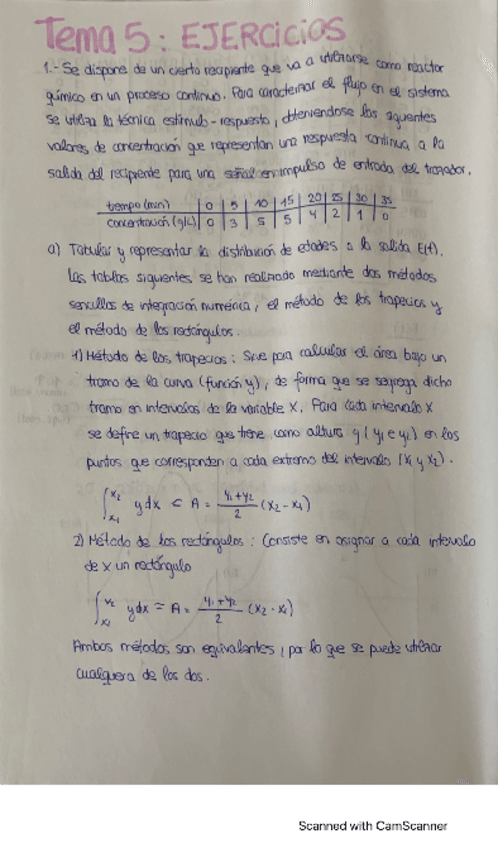 Tema 5: EJERCICIOS
1.- Se dispone de un cierto recipiente que va a utilizarse como reactor
químico en un proceso continuo. Para caracterizar el flujo en el sistema
se utiliza la técnica estímulo-respuesta, obteniéndose los siguientes
valores de concentración que representan una respuesta continua a la
salida del recipiente para una señal en impulso de entrada del trazador.
tiempo (min) 0 5 10 15 20 25 30 35
concentración (g/L) 0 3 5 5 4 2 1 0
a) Tabular y representar la distribución de edades a la salida E(t).
Las tablas siguientes se han realizado mediante dos métodos
sencillos de integración numérica, el método de los trapecios y
el método de los rectángulos.
1) Método de los trapecios: Sirve para calcular el área bajo un
tramo de la curva (función y), de forma que se segrega dicho
tramo en intervalos de la variable X. Para cada intervalo X
se define un trapecio que tiene como altura y (y₁ e y₂) en los
puntos que corresponden a cada extremo del intervalo (x₁ y x₂).
∫ₓ₁ˣ² y dx = A = (y₁+y₂)/2 (x₂-x₁)
2) Método de los rectángulos: Consiste en asignar a cada intervalo
de x un rectángulo
∫ₓ₁ˣ² y dx = A = (y₁+y₂)/2 (x₂-x₁)
Ambos métodos son equivalentes, por lo que se puede utilizar
cualquiera de los dos.
Scanned with CamScanner